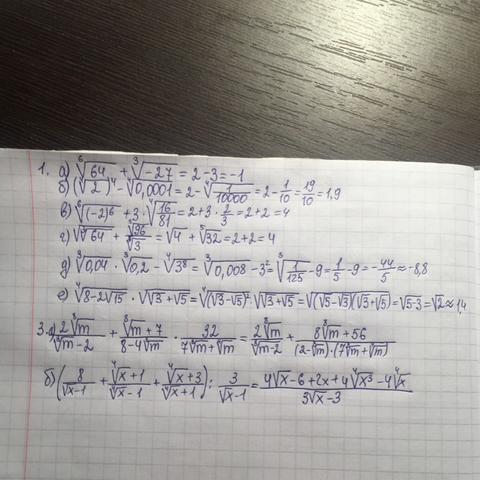 1. а) ⁶√64 + ³√-27 = 2 - 3 = -1
б) (⁴√2)⁴ - ⁴√0,0001 = 2 - ⁴√(1/10000) = 2 - 1/10 = 19/10 = 1,9
в) ⁶√(-2)⁶ + 3 · ⁴√(16/81) = 2 + 3 · 2/3 = 2 + 2 = 4
г) √∛64 + ⁵√96/⁵√3 = √4 + ⁵√32 = 2 + 2 = 4
д) ³√0,04 · ³√0,2 - ⁴√3⁸ = ³√0,008 - 3² = ³√(1/125) - 9 = 1/5 - 9 = -44/5 ≈ -8,8
е) ⁴√(8-2√15) · √(√3+√5) = ⁴√(√3-√5)² · √(√3+√5) = √((√5-√3)(√3+√5)) = √(5-3) = √2 ≈ 1,4
3. а) 2⁸√m/(⁸√m-2) + (⁸√m+7)/(8-4⁸√m) · 32/(7⁸√m+⁴√m) = 2⁸√m/(⁸√m-2) + (8⁸√m+56)/((2-⁸√m)·(7⁸√m+⁴√m))
б) (8/(√x-1) + (⁴√x+1)/(⁴√x-1) + (⁴√x+3)/(⁴√x+1)) : 3/(√x-1) = (4√x-6+2x+4⁴√x³-4⁴√x)/(3√x-3)